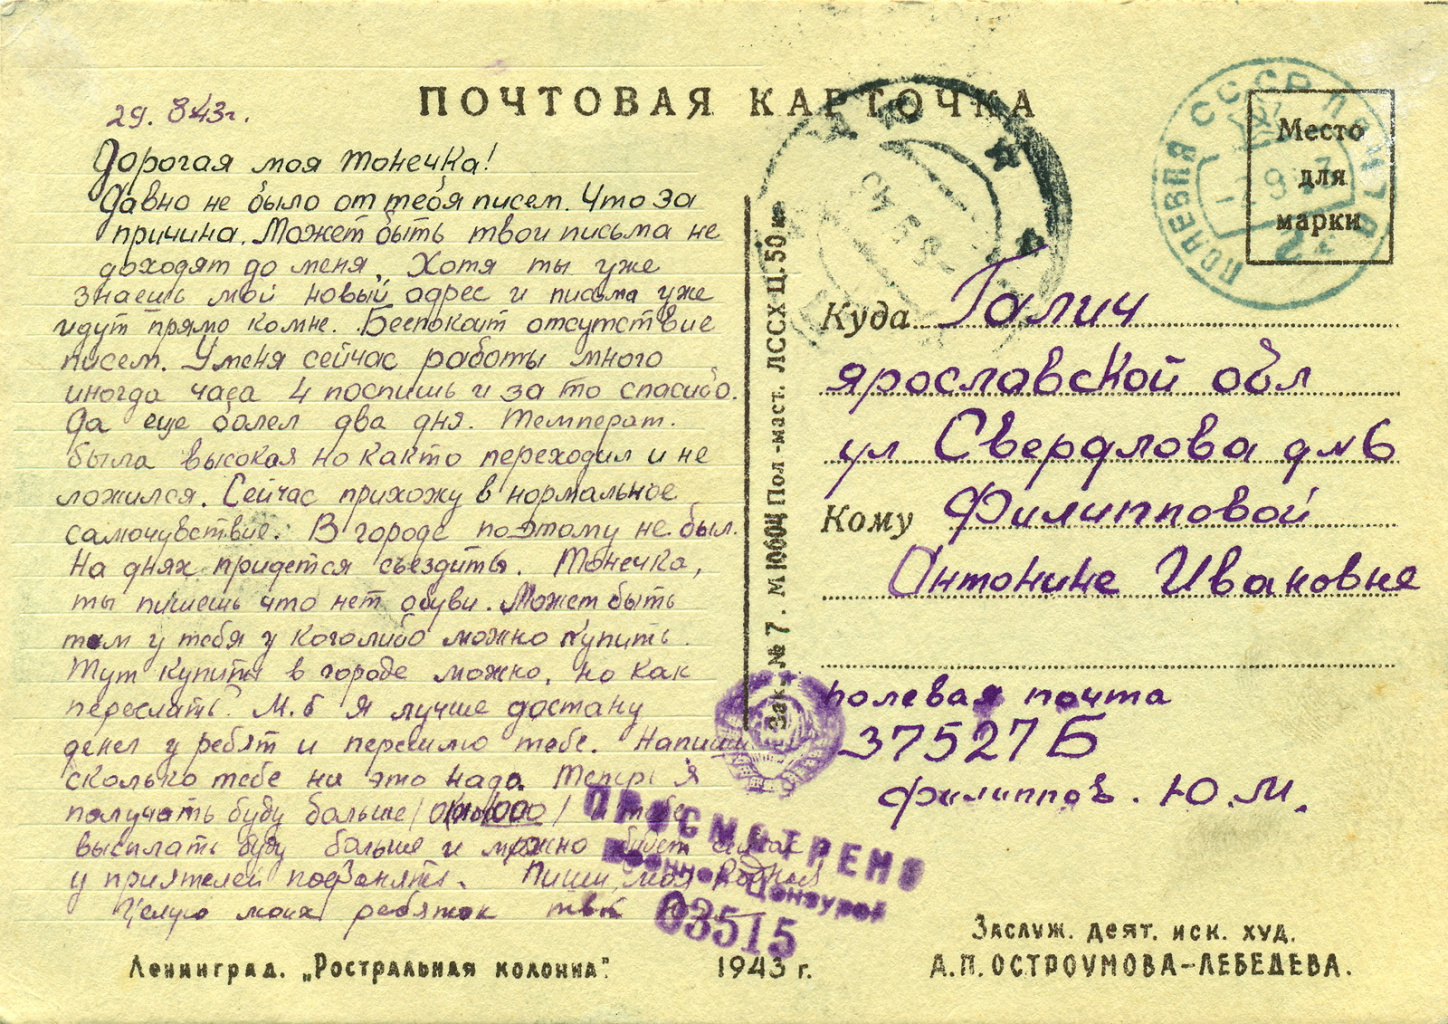 ПОЧТОВАЯ КАРТОЧКА
29. 8 43г.
Дорогая моя Тонечка!
Давно не было от тебя писем. Что за
причина. Может быть твои письма не
доходят до меня. Хотя ты уже
знаешь мой новый адрес и письма уже
идут прямо комне. Беспокоит отсутствие
писем. Уменя сейчас работы много
иногда часа 4 поспишь и за то спасибо.
Да еще болел два дня. Температ.
была высокая но както переходил и не
ложился. Сейчас прихожу в нормальное
самочувствие. В городе поэтому не был.
На днях придется съездить. Тонечка,
ты пишешь что нет обуви. Может быть
там у тебя у коголибо можно купить.
Тут купить в городе можно, но как
переслать? М.б я лучше достану
денег у ребят и перешлю тебе. Напиши
сколько тебе на это надо. Теперь я
получать буду больше / 1000 / и тебе
высылать буду больше и можно будет сейчас
у приятелей подзанять. Пиши, моя родная
Целую моих ребяток твой Ю
Ленинград. „Ростральная колонна".
1943 г.
Зак. № 7. М 10604 Пол-маст. ЛССХ Ц. 50 к.
ПОЛЕВАЯ СССР ПОЧТА
Место
для
марки
Куда Галич
ярославской обл
ул Свердлова д №6
Кому Филипповой
Антонине Ивановне
полевая почта
37527 Б
Филиппов. Ю.М.
ПРОСМОТРЕНО
Военной Цензурой
03515
Заслуж. деят. иск. худ.
А.П. ОСТРОУМОВА-ЛЕБЕДЕВА.